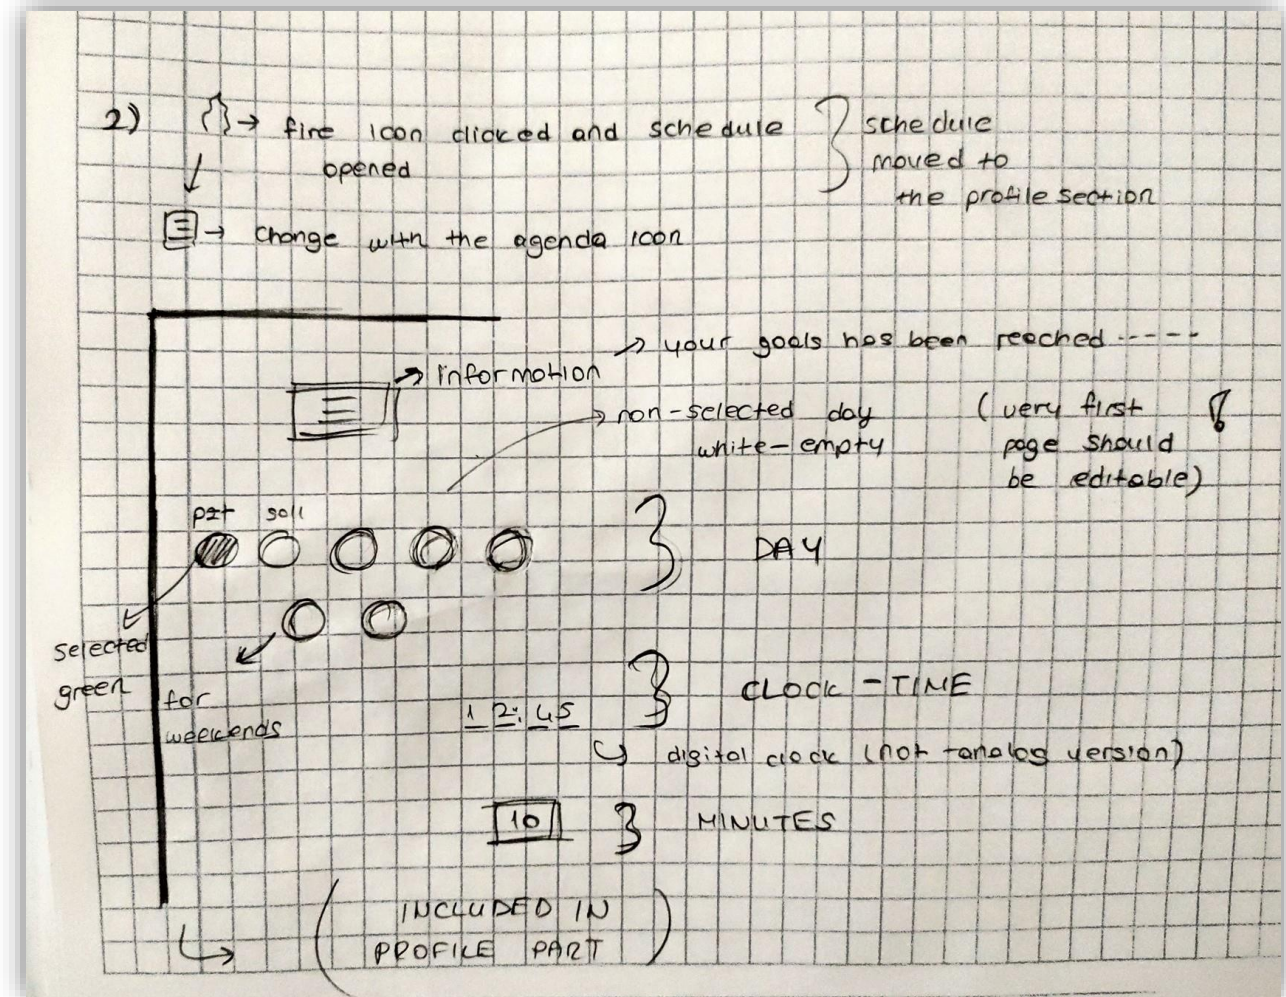 2) → fire icon clicked and schedule
opened
schedule
moved to
the profile section
→ change with the agenda icon
→ your goals has been reached -----
→ information
→ non-selected day
white-empty
(very first
page should
be editable)
pzt salı
DAY
selected
green
for
weekends
CLOCK-TIME
12:45
digital clock (not analog version)
10
MINUTES
(INCLUDED IN
PROFILE PART)